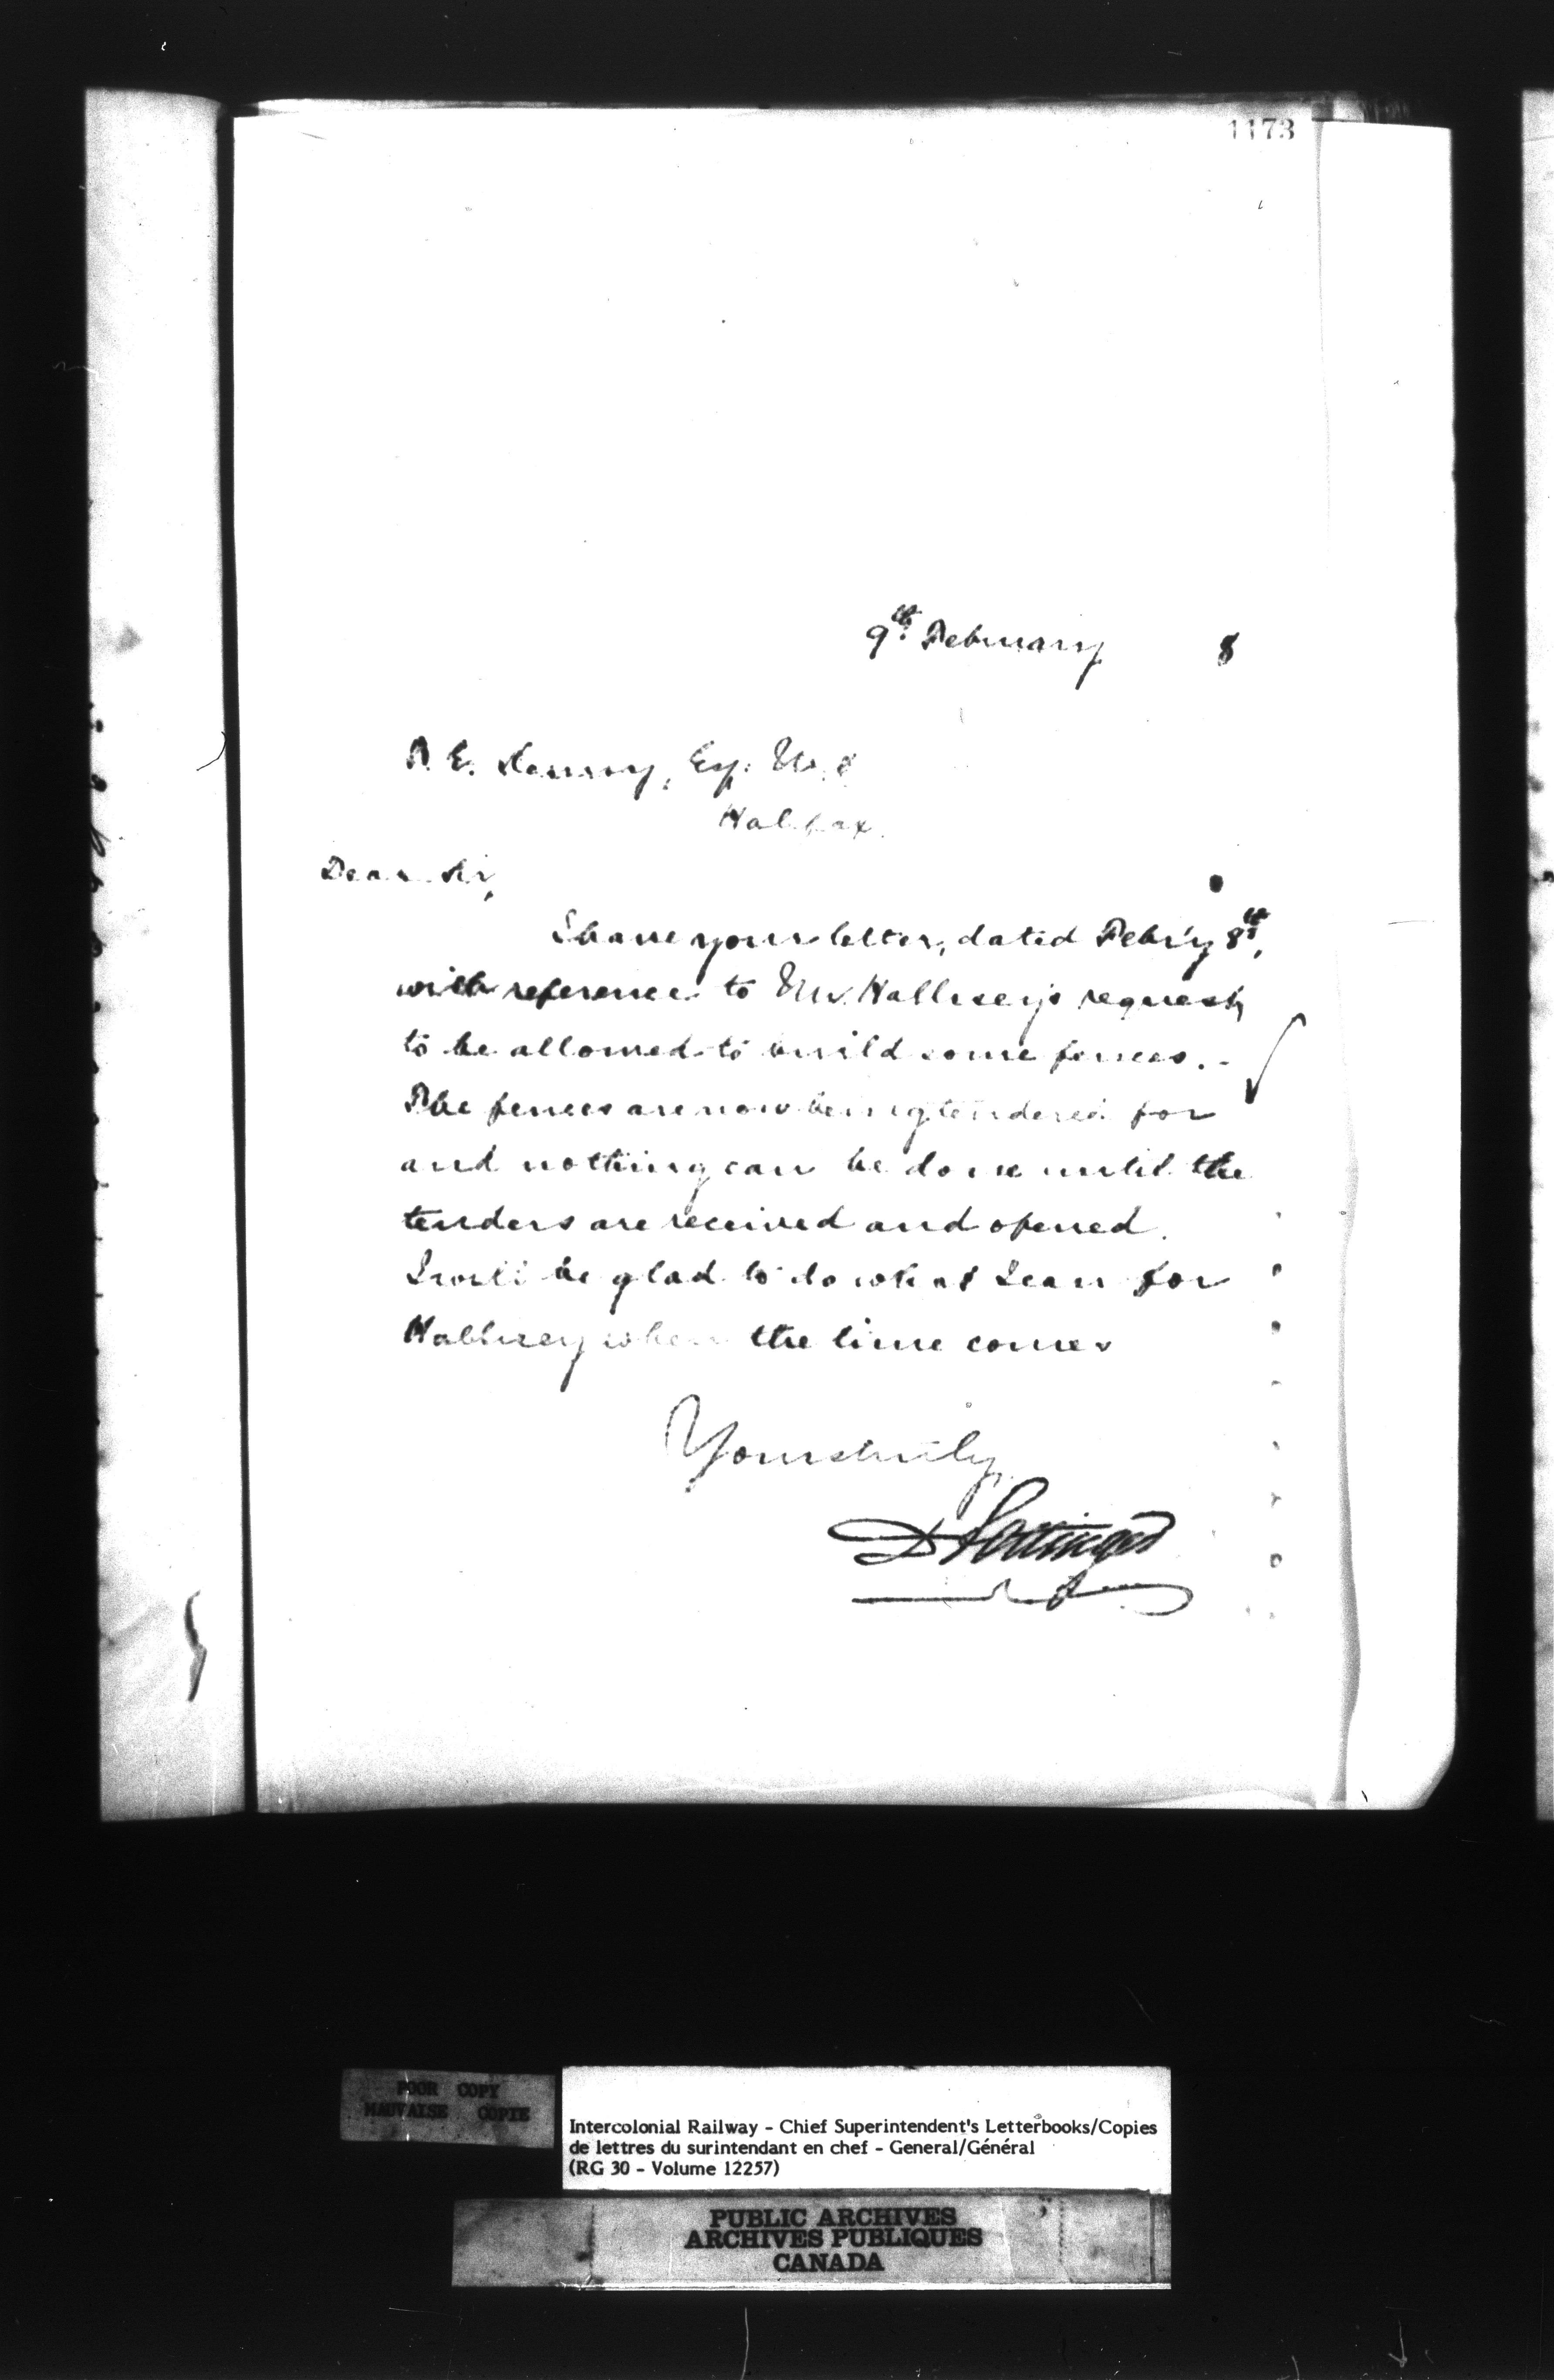 1173
9th. February 8
T. E. Kenny, Esq.
Halifax.
Dear Sir,
I have your letter, dated Feb'y 8th,
with reference to Mr. Hallisey's request
to be allowed to build some fences. -
The fences are now being tendered for
and nothing can be done until the
tenders are received and opened.
I will be glad to do what I can for
Hallisey when the time comes
Yours truly,
D Pottinger
POOR COPY
MAUVAISE COPIE
Intercolonial Railway - Chief Superintendent's Letterbooks/Copies
de lettres du surintendant en chef - General/Général
(RG 30 - Volume 12257)
PUBLIC ARCHIVES
ARCHIVES PUBLIQUES
CANADA